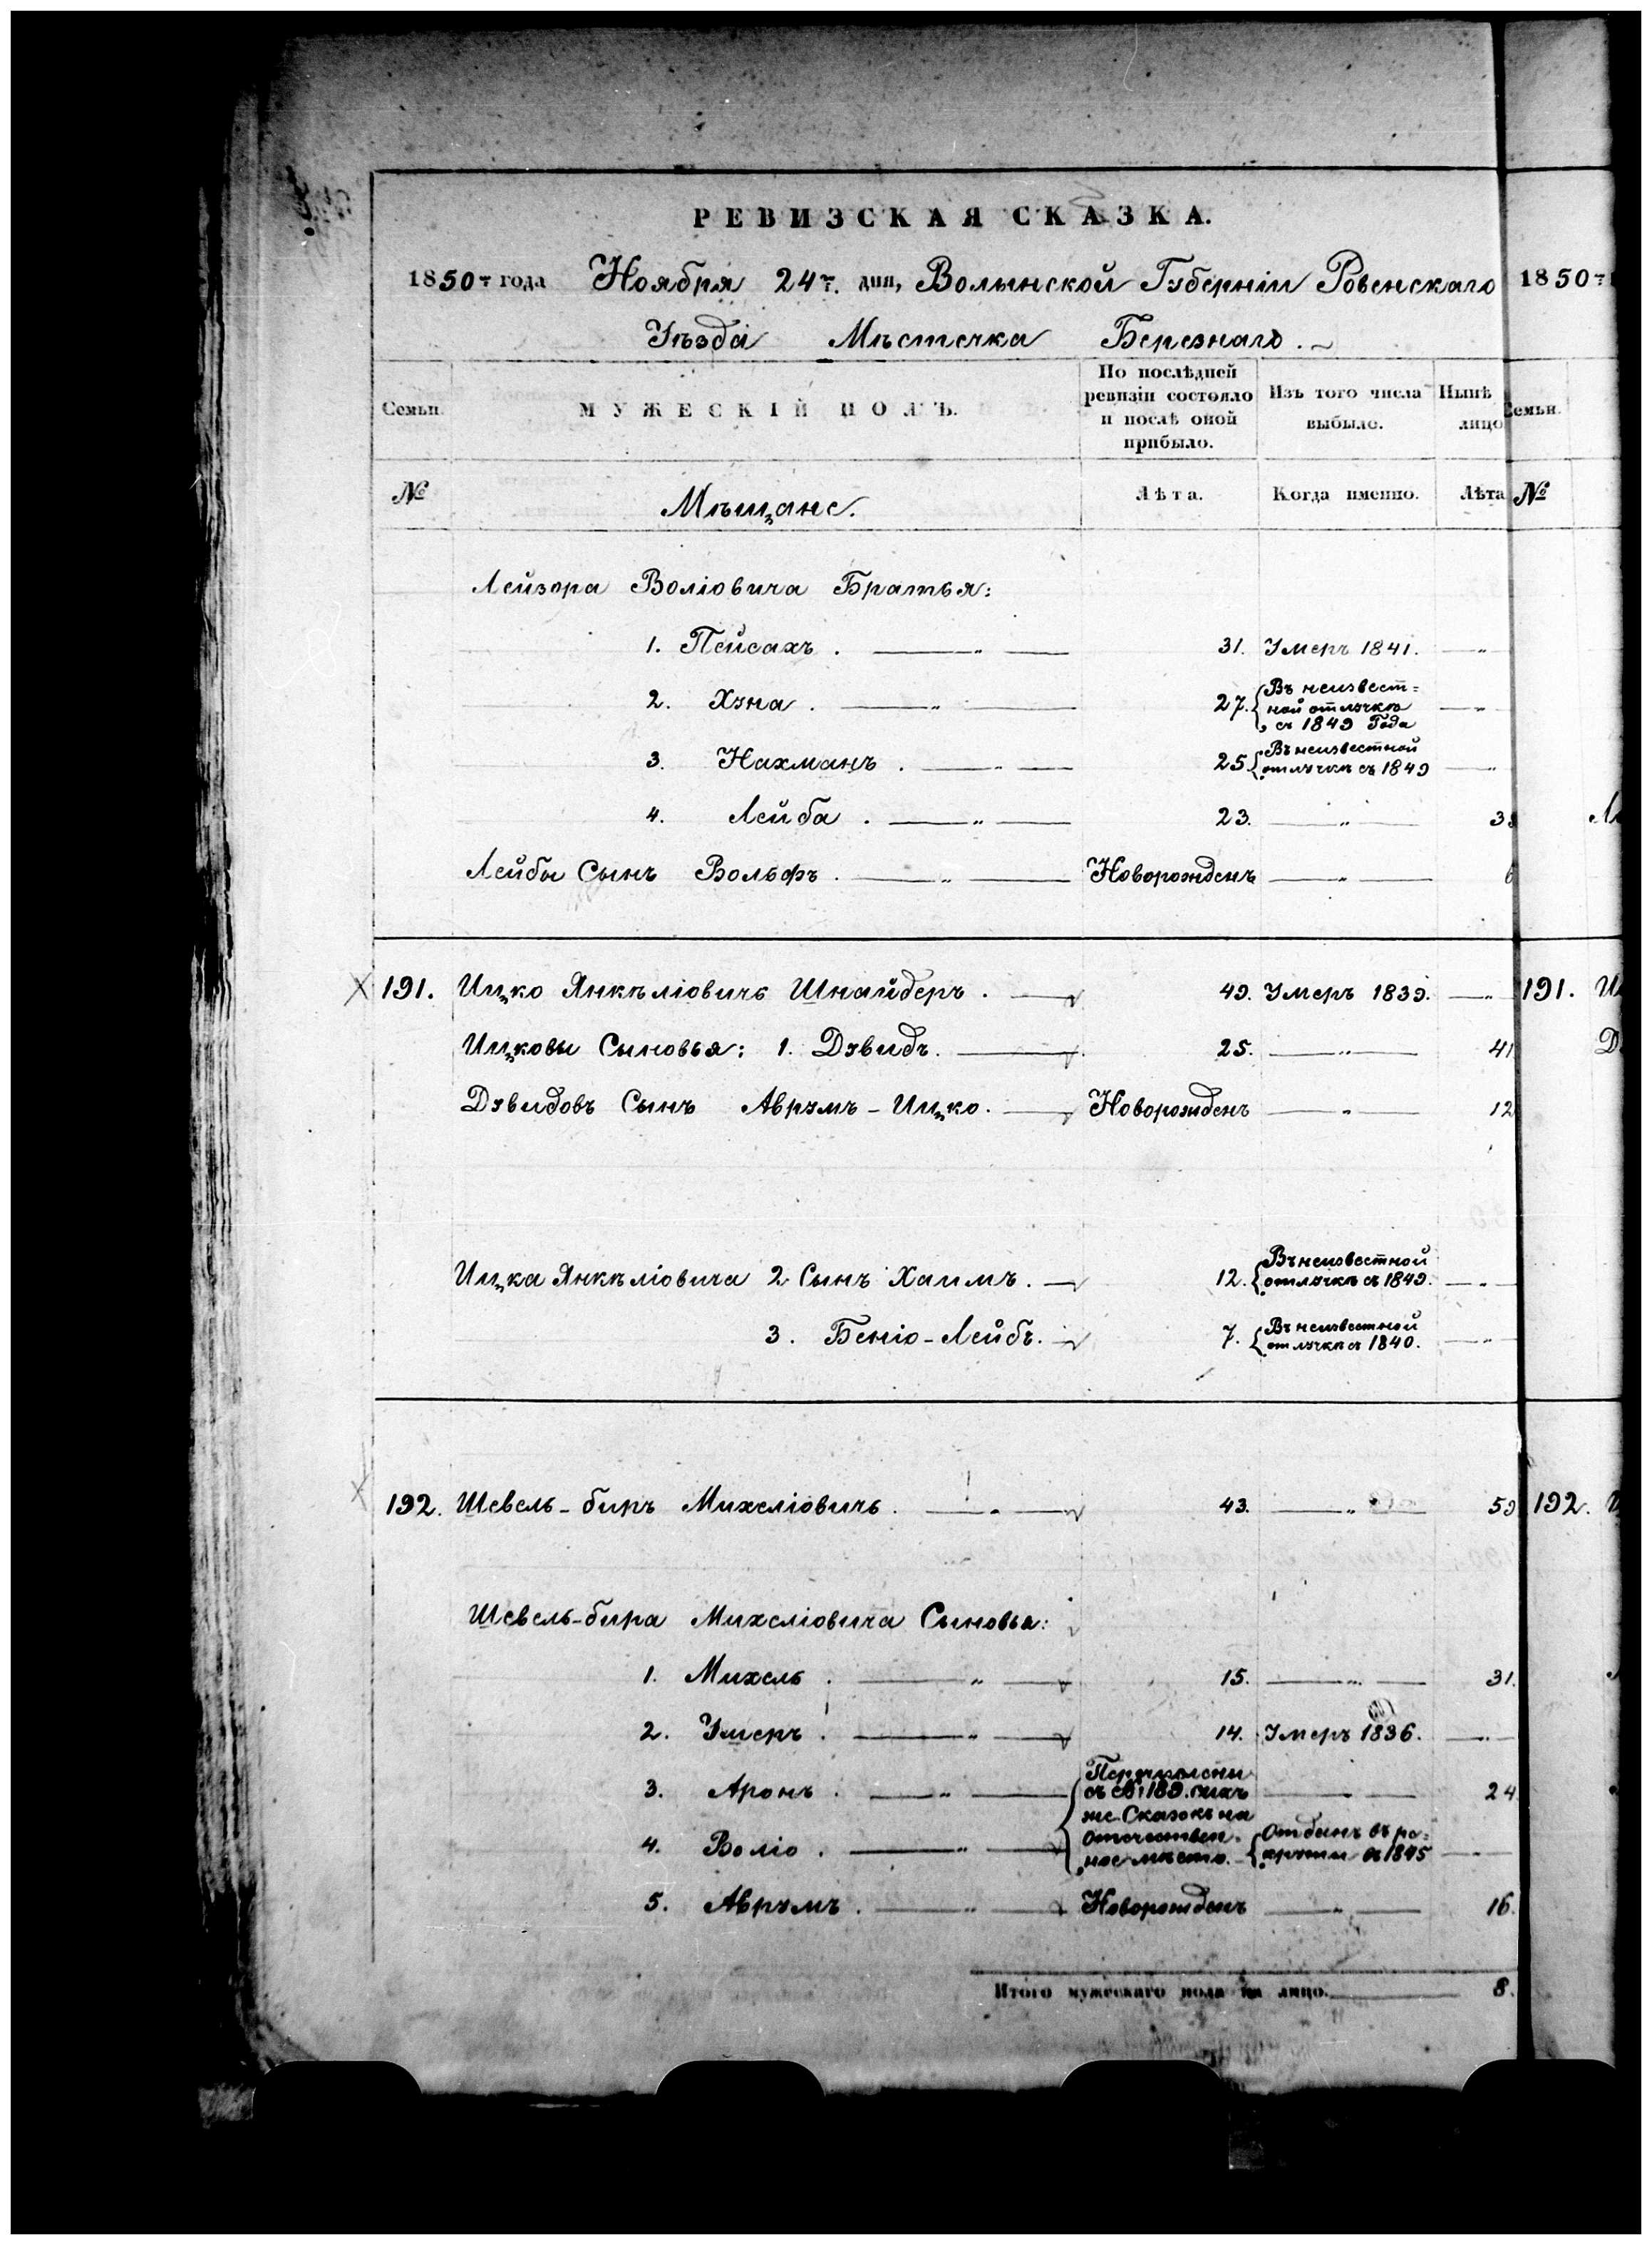 РЕВИЗСКАЯ СКАЗКА.
1850 г. года Ноября 24 г. дня, Волынской Губерніи Ровенскаго
Уѣзда Мѣстечка Березнаго.
Семьи. МУЖЕСКІЙ ПОЛЪ. По послѣдней ревизіи состояло и послѣ оной прибыло. Изъ того числа выбыло. Нынѣ лицо
№ Мѣщане. Лѣта. Когда именно. Лѣта
Лейзора Воліовича Братья:
1. Пейсахъ . — „ — 31. Умеръ 1841. — „
2. Хуна . — „ — 27. Въ неизвест=ной отлучкѣ съ 1849 Года — „
3. Нахманъ . — „ — 25. Въ неизвестной отлучкѣ съ 1849 — „
4. Лейба . — „ — 23. — „ —
Лейбы Сынъ Вольфъ . — „ — Новорожденъ — „ — 6
191. Ицко Янкѣліовичъ Шнайдеръ . — 49. Умеръ 1839. — „
Ицковы Сыновья: 1. Дувидъ. — 25. — „ — 41
Дувидовъ Сынъ Аврумъ-Ицко. — Новорожденъ — „ — 12
Ицка Янкѣліовича 2 Сынъ Хаимъ. — 12. Въ неизвестной отлучкѣ съ 1849. — „
3. Беніо-Лейбъ. — 7. Въ неизвестной отлучкѣ съ 1840. — „
192. Шевель-биръ Михеліовичъ . — „ — 43. — „ — 59
Шевель-бира Михеліовича Сыновья:
1. Михель . — „ — 15. — „ — 31.
2. Умеръ . — „ — 14. Умеръ 1836. — „
3. Аронъ . — „ — Перечислены съ 189. сихъ же Сказокъ на отечествен=ное мѣсто. — „ — 24
4. Воліо . — „ — Отданъ въ ре=круты въ 1845 — „
5. Аврумъ . — „ — Новорожденъ — „ — 16.
Итого мужескаго пола на лицо. 8.
1850
Семьи.
№
191.
192.